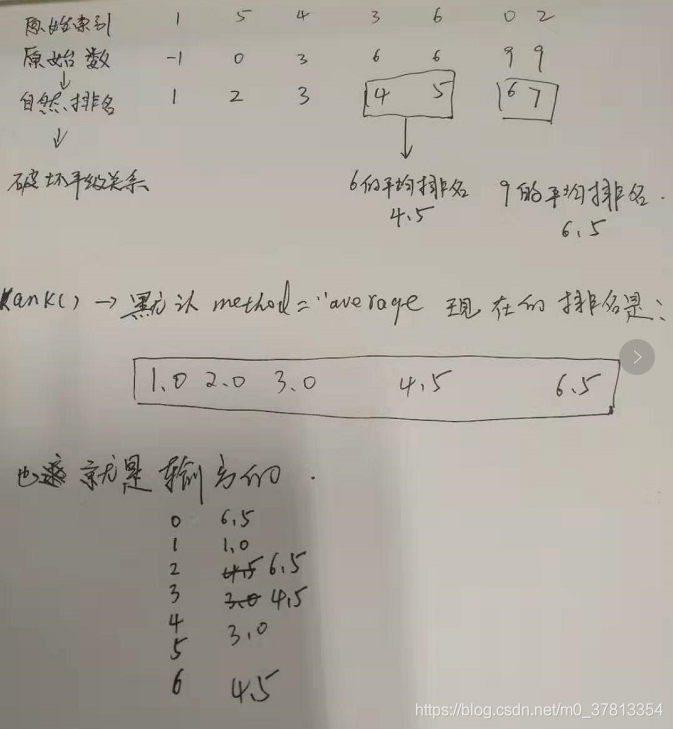 原始索引 1 5 4 3 6 0 2
原始数 -1 0 3 6 6 9 9
自然排名 1 2 3 4 5 6 7
破坏平级关系
6的平均排名
4.5
9的平均排名.
6.5
rank() → 默认 method="average 现在的排名是:
1.0 2.0 3.0 4.5 6.5
也就是输出的.
0 6.5
1 1.0
2 4.5 6.5
3 3.0 4.5
4 3.0
5
6 4.5
https://blog.csdn.net/m0_37813354